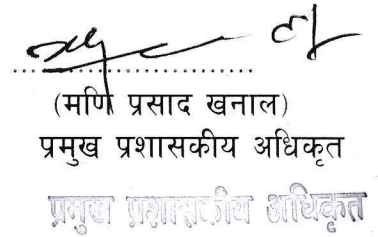 (मणि प्रसाद खनाल)
प्रमुख प्रशासकीय अधिकृत
प्रमुख प्रशासकीय अधिकृत